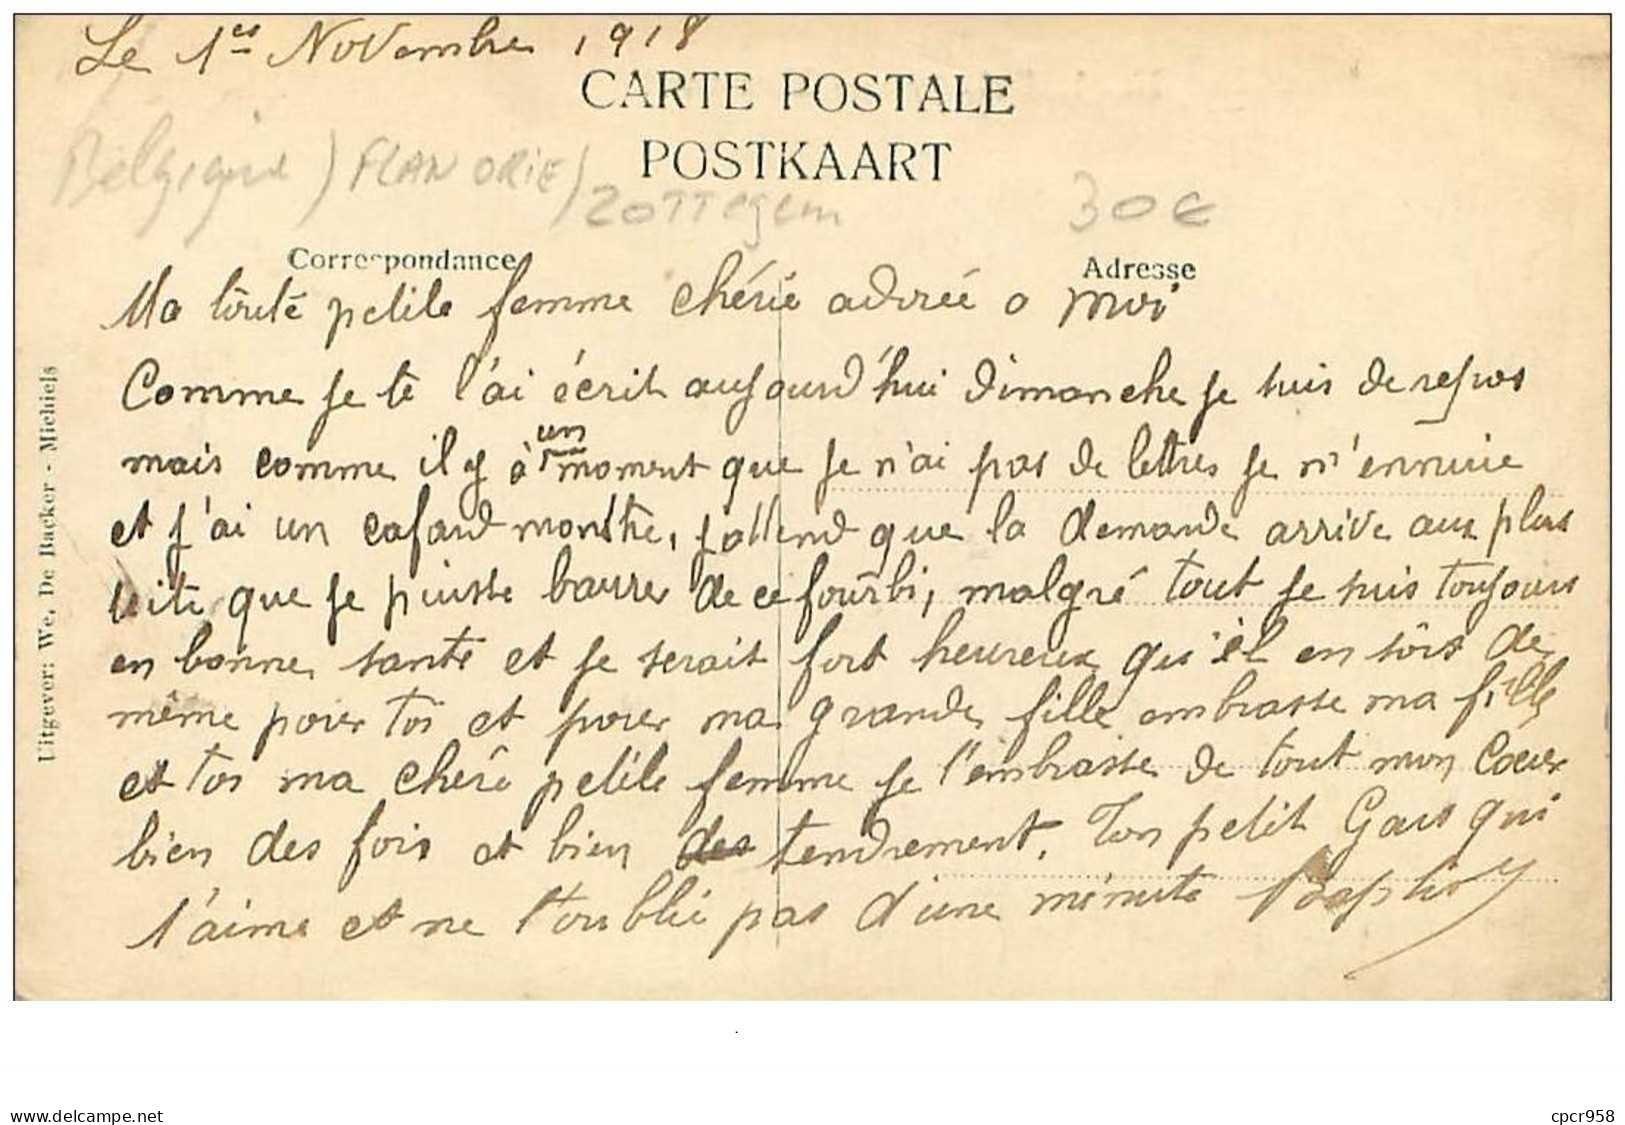 Le 1er Novembre 1918
CARTE POSTALE
POSTKAART
Belgique) FLAN ORIE/ Zottegem
30€
Correspondance
Adresse
Ma toute petite femme chérie adorée a moi
Comme je te l'ai écrit aujourd'hui dimanche je suis de repos
mais comme il y à un moment que je n'ai pas de lettres je m'ennuie
et j'ai un cafard monstre, j'attend que la demande arrive au plus
vite que je puisse barrer de ce fourbi, malgré tout je suis toujours
en bonne santé et je serait fort heureux qu'il en sois de
même pour toi et pour ma grande fille embrasse ma fille
et toi ma chère petite femme je t'embrasse de tout mon Cœur
bien des fois et bien des tendrement. Ton petit Gars qui
t'aime et ne t'oublie pas d'une minute
Uitgever: We. De Backer - Michiels
www.delcampe.net
cpcr958